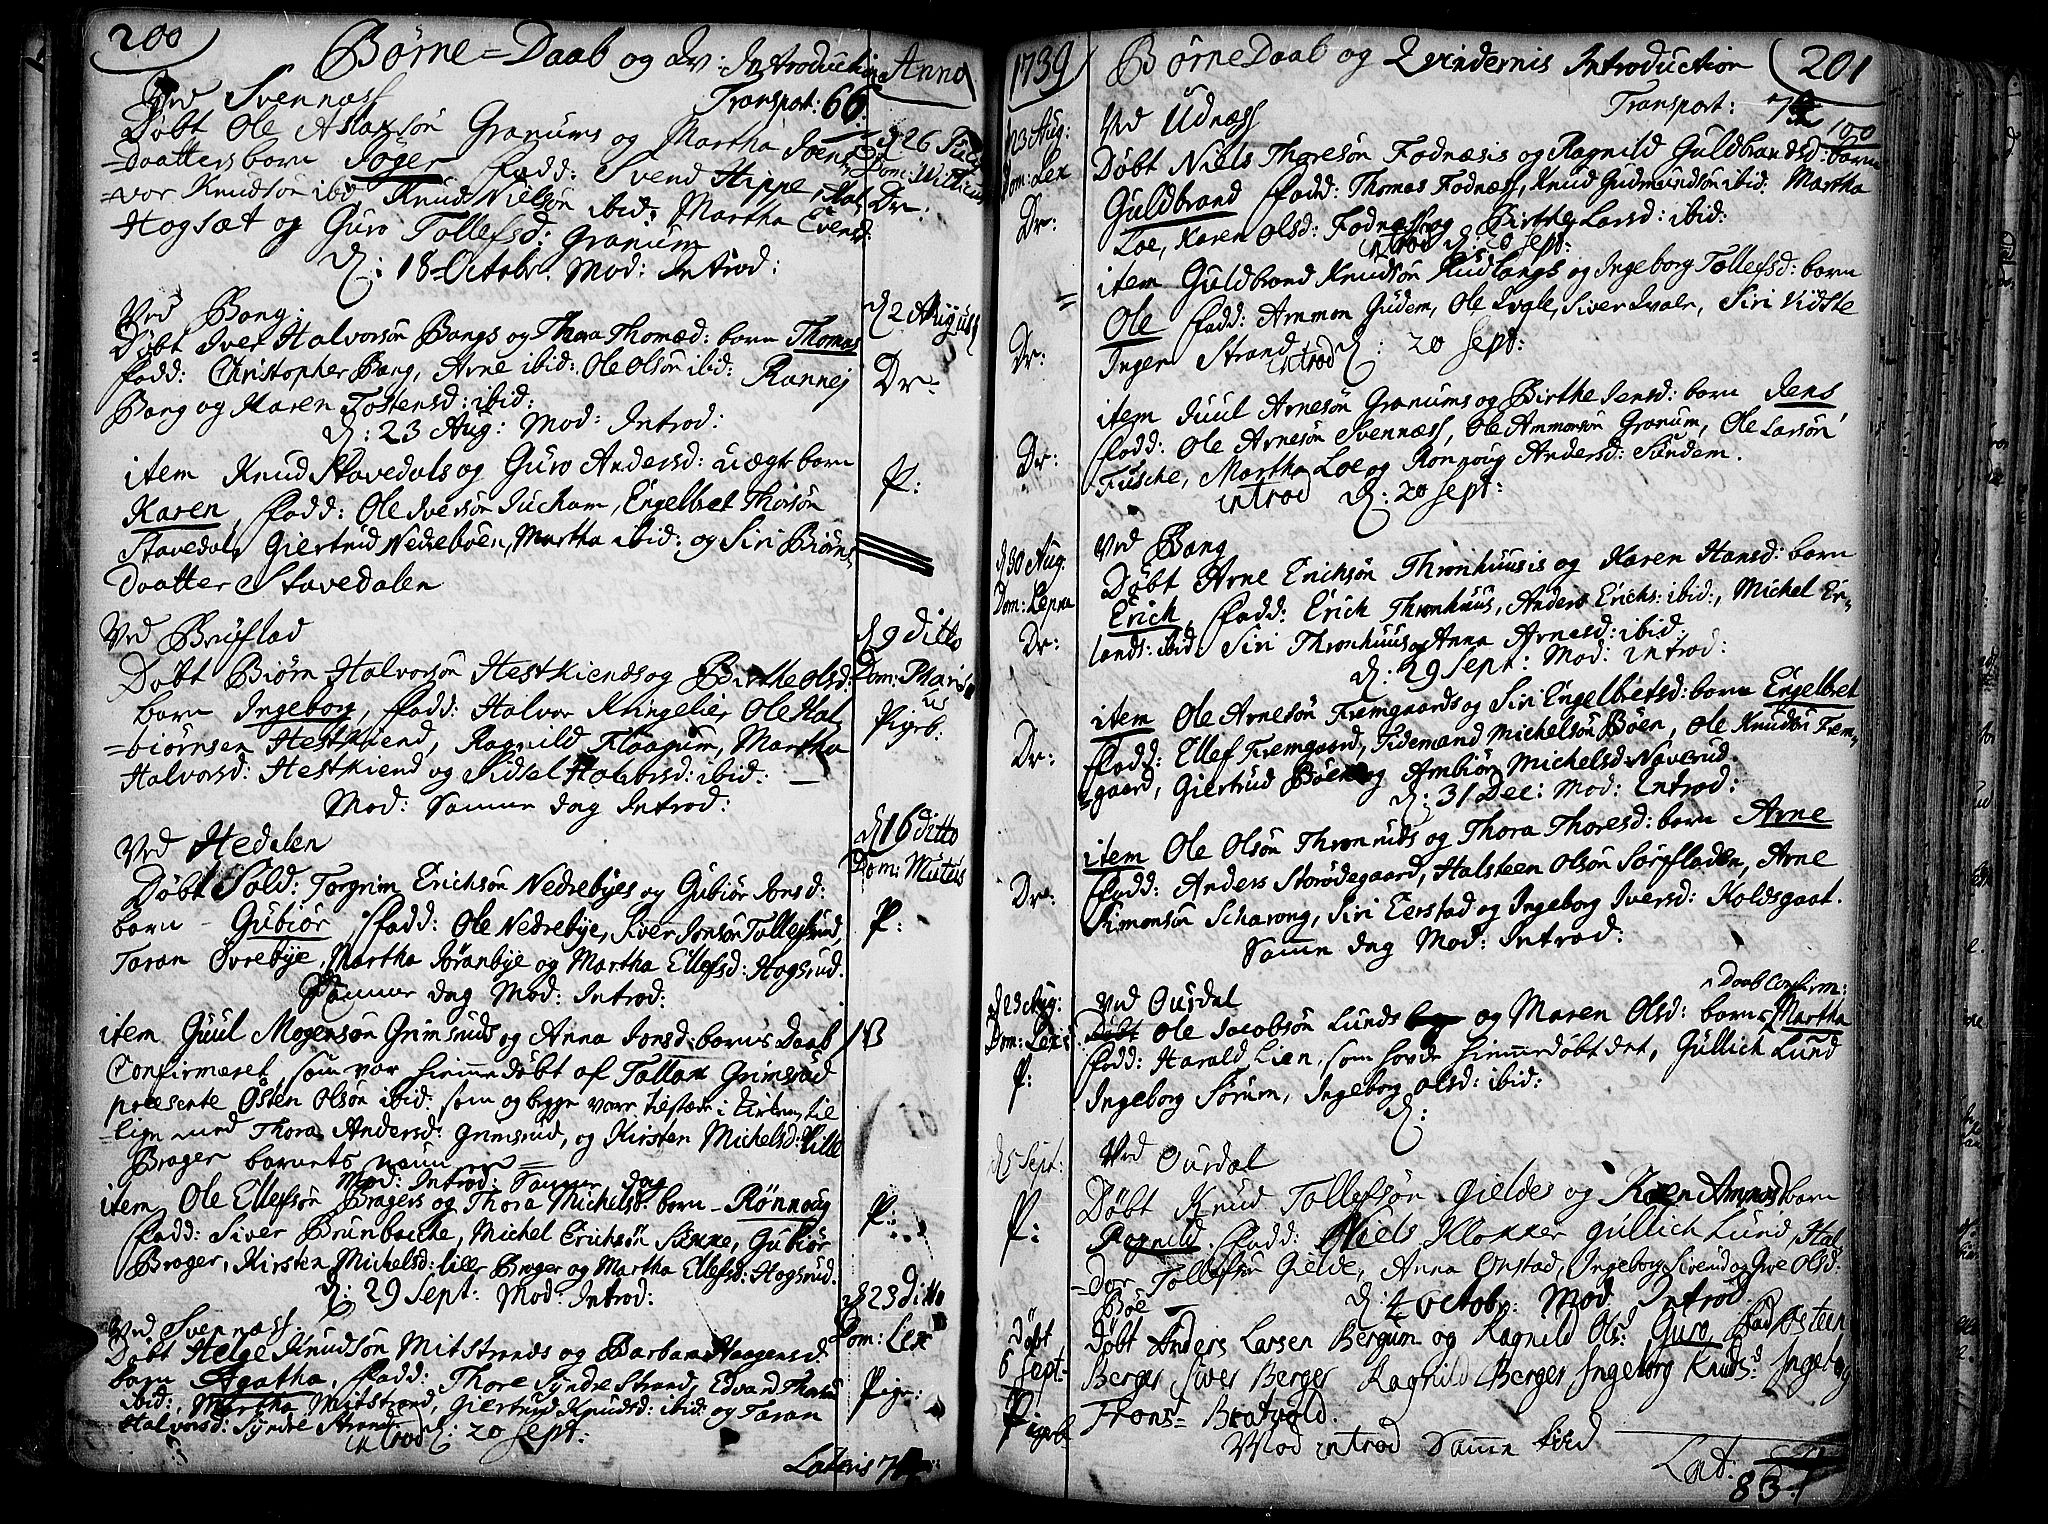 200
Børne=Daab og Qv: Introduction Anno
Ved Svennæss
Transport: 66
Døbt Ole Aslaxsøn Granums og Martha Svens
=daatters born Joger fadd: Svend Hippe, Hal
=vor Knudsøn ibid Knud Nielsøn ibid: Martha Evensd:
Hogsæt og Guro Tollefsd: Granum
d: 18 Octobr. Mod: Introd:
d 26 Julij
Dom:
Dr:
Ved Bang:
Døbt Iver Halvorsøn Bangs og Thora Thomæd: born Thomas
fadd: Christopher Bang, Arne ibid: Ole Olsøn ibid: Rannej
Bang og Karen Tostensd: ibid:
d: 23 Aug: Mod: Introd:
d 2 August
Dr:
item Knud Stavedals og Guro Andersd: uægte born
Karen, fadd: Ole Iversøn Jucham, Engelbret Thorsøn
Stavedal, Giertrud Nedrebøen, Martha ibid: og Siri Biørns
daatter Stavedalen
P:
Ved Bruflad
Døbt Biørn Halvorsøn Hestkiends og Birthe Olsd:
born Ingeborg, fadd: Halvor Kringelie, Ole Hal
=biørnsen Hestkiend, Ragnild Flaagum, Martha
Halvorsd: Hestkiend og Sidsel Halvorsd: ibid:
Mod: Samme dag Introd:
d 9 ditto
Dom: Pharisæ
us
Pigeb.
Ved Hedalen
Døbt Sold: Torgrim Erichsøn Nedrebyes og Gubiør Jonsd:
born - Gubiør, fadd: Ole Nedrebye, Siver Jonsøn Tollefsrud,
Taran Øvrebye, Martha Jøranbye og Martha Ellefsd: Hogsrud.
Samme dag Mod: Introd:
d 16 ditto
Dom: Mutus
P:
item Guul Mogensøn Grimsruds og Anna Jonsd: borns Daab
Confirmeret, som var hiemmedøbt af Tollax Grimsrud
præsente Østen Olsøn ibid: som og begge vare tilstæde i Kirken, til
=lige med Thora Andersd: Grimsrud, og Kirsten Michelsd: Lille
Brager barnets navn
Mod: Introd: Samme dag
item Ole Ellefsøn Bragers og Thora Michelsd: born - Rønnoug
fadd: Siver Brunbacke, Michel Erichsøn, Gubiør
Brager, Kirsten Michelsd: lille Brager og Martha Ellefsd: Hogsrud.
d: 29 Sept: Mod: Introd:
P:
Ved Svennæss:
Døbt Helge Knudsøn Mitstrands og Barbara Haagensd:
born Agatha, fadd: Thore Syndre Strand, Edvard Thorsøn
ibid:, Martha Mitstrand, Giertrud Knudsd: ibid: og Taran
Halvorsd: Syndre Strand
introd d: 20 Sept:
d 23 ditto
Dom: Lex
Pige:
Lateris
1739 Børne Daab og Qvindernis Introduction 201
Transport:
d 23 Aug:
Dom: Lex
Dr:
Ved Udnæss
Døbt Niels Thoresøn Fodnæsis og Ragnild Guldbrandsd: born
Guldbrand fadd: Thomas Fodnæss, Knud Gudmundsøn ibid: Martha
Loe, Karen Olsd: Fodnæss og Birthe Larsd: ibid:
introd d: 20 Sept:
item Guldbrand Knudsøn Rudlangs og Ingeborg Tollefsd: born
Ole fadd: Ammon Gudem, Ole Qvale, Siver Qvale, Siri Vidste
Inger Strand
introd d: 20 Sept:
Dr:
item Juul Arnesøn Granums og Birthe Jensd: born Jens,
fadd: Ole Arnesøn Svennæss, Ole Ammonsøn Granum, Ole Larsøn
Fusche, Martha Loe og Ronnoug Andersd: Sundem.
introd d: 20 Sept:
Dr:
Ved Bang
Døbt Arne Erichsøn Thronhuusis og Karen Hansd: born
Erich, fadd: Erich Thronhuus, Anders Erichs: ibid:, Michel Er-
lands: ibid: Siri Thronhuus og Anna Arnesd: ibid.
d: 29 Sept: Mod: introd:
d 30 Aug.
Dom: Lepra
Dr:
item Ole Arnesøn Fremgaards og Siri Engelbretsd: born Engelbret
fadd: Ellef Fremgaard, Tidemand Michelsøn Bøen, Ole Knudsøn Frem-
=gaard, Giertrud Bøen og Ambiør Michelsd: Noverud.
d: 31 Dec: Mod: Introd:
Dr:
item Ole Olsøn Thronruds og Thora Thoresd: born Arne
fadd: Anders Storødegaard, Halsteen Olsøn Sørfladen, Arne
Simonsøn Scharong, Siri Eerstad og Ingeborg Iversd: Koldsgaat.
Samme dag Mod: Introd:
Dr:
d 23 Aug:
Dom: Lex
P:
Ved Ourdal
Daab Confirm:
Døbt Ole Jacobsøn Lunds og Maren Olsd: borns Martha
fadd: Harald Lien, som hafde hiemmedøbt det, Gullich Lund
Ingeborg Sørum, Ingeborg Olsd: ibid:
d:
d 5 Sept:
P:
Ved Ourdal
Døbt Knud Tollefsøn Gieldes og Karen Amonsd. born
Ragnild. fadd: Niels Klokker Gullich Lund, Hal
=dor Tollefsøn Gielde, Anna Onstad, Ingeborg Siverud og Olsd:
Bøe
d: 4 Octobr: Mod Introd
Døbt
6 Sept-
Pigeb
Døbt Anders Larsen Bergum og Ragnild Ols: Guro fad Østeen
Berger Siver Berger Ragnild Berger Ingeborg Knuds: Ingeborg
Thons= Bratvold.
Mod introd Samme tiid
Lat:
83